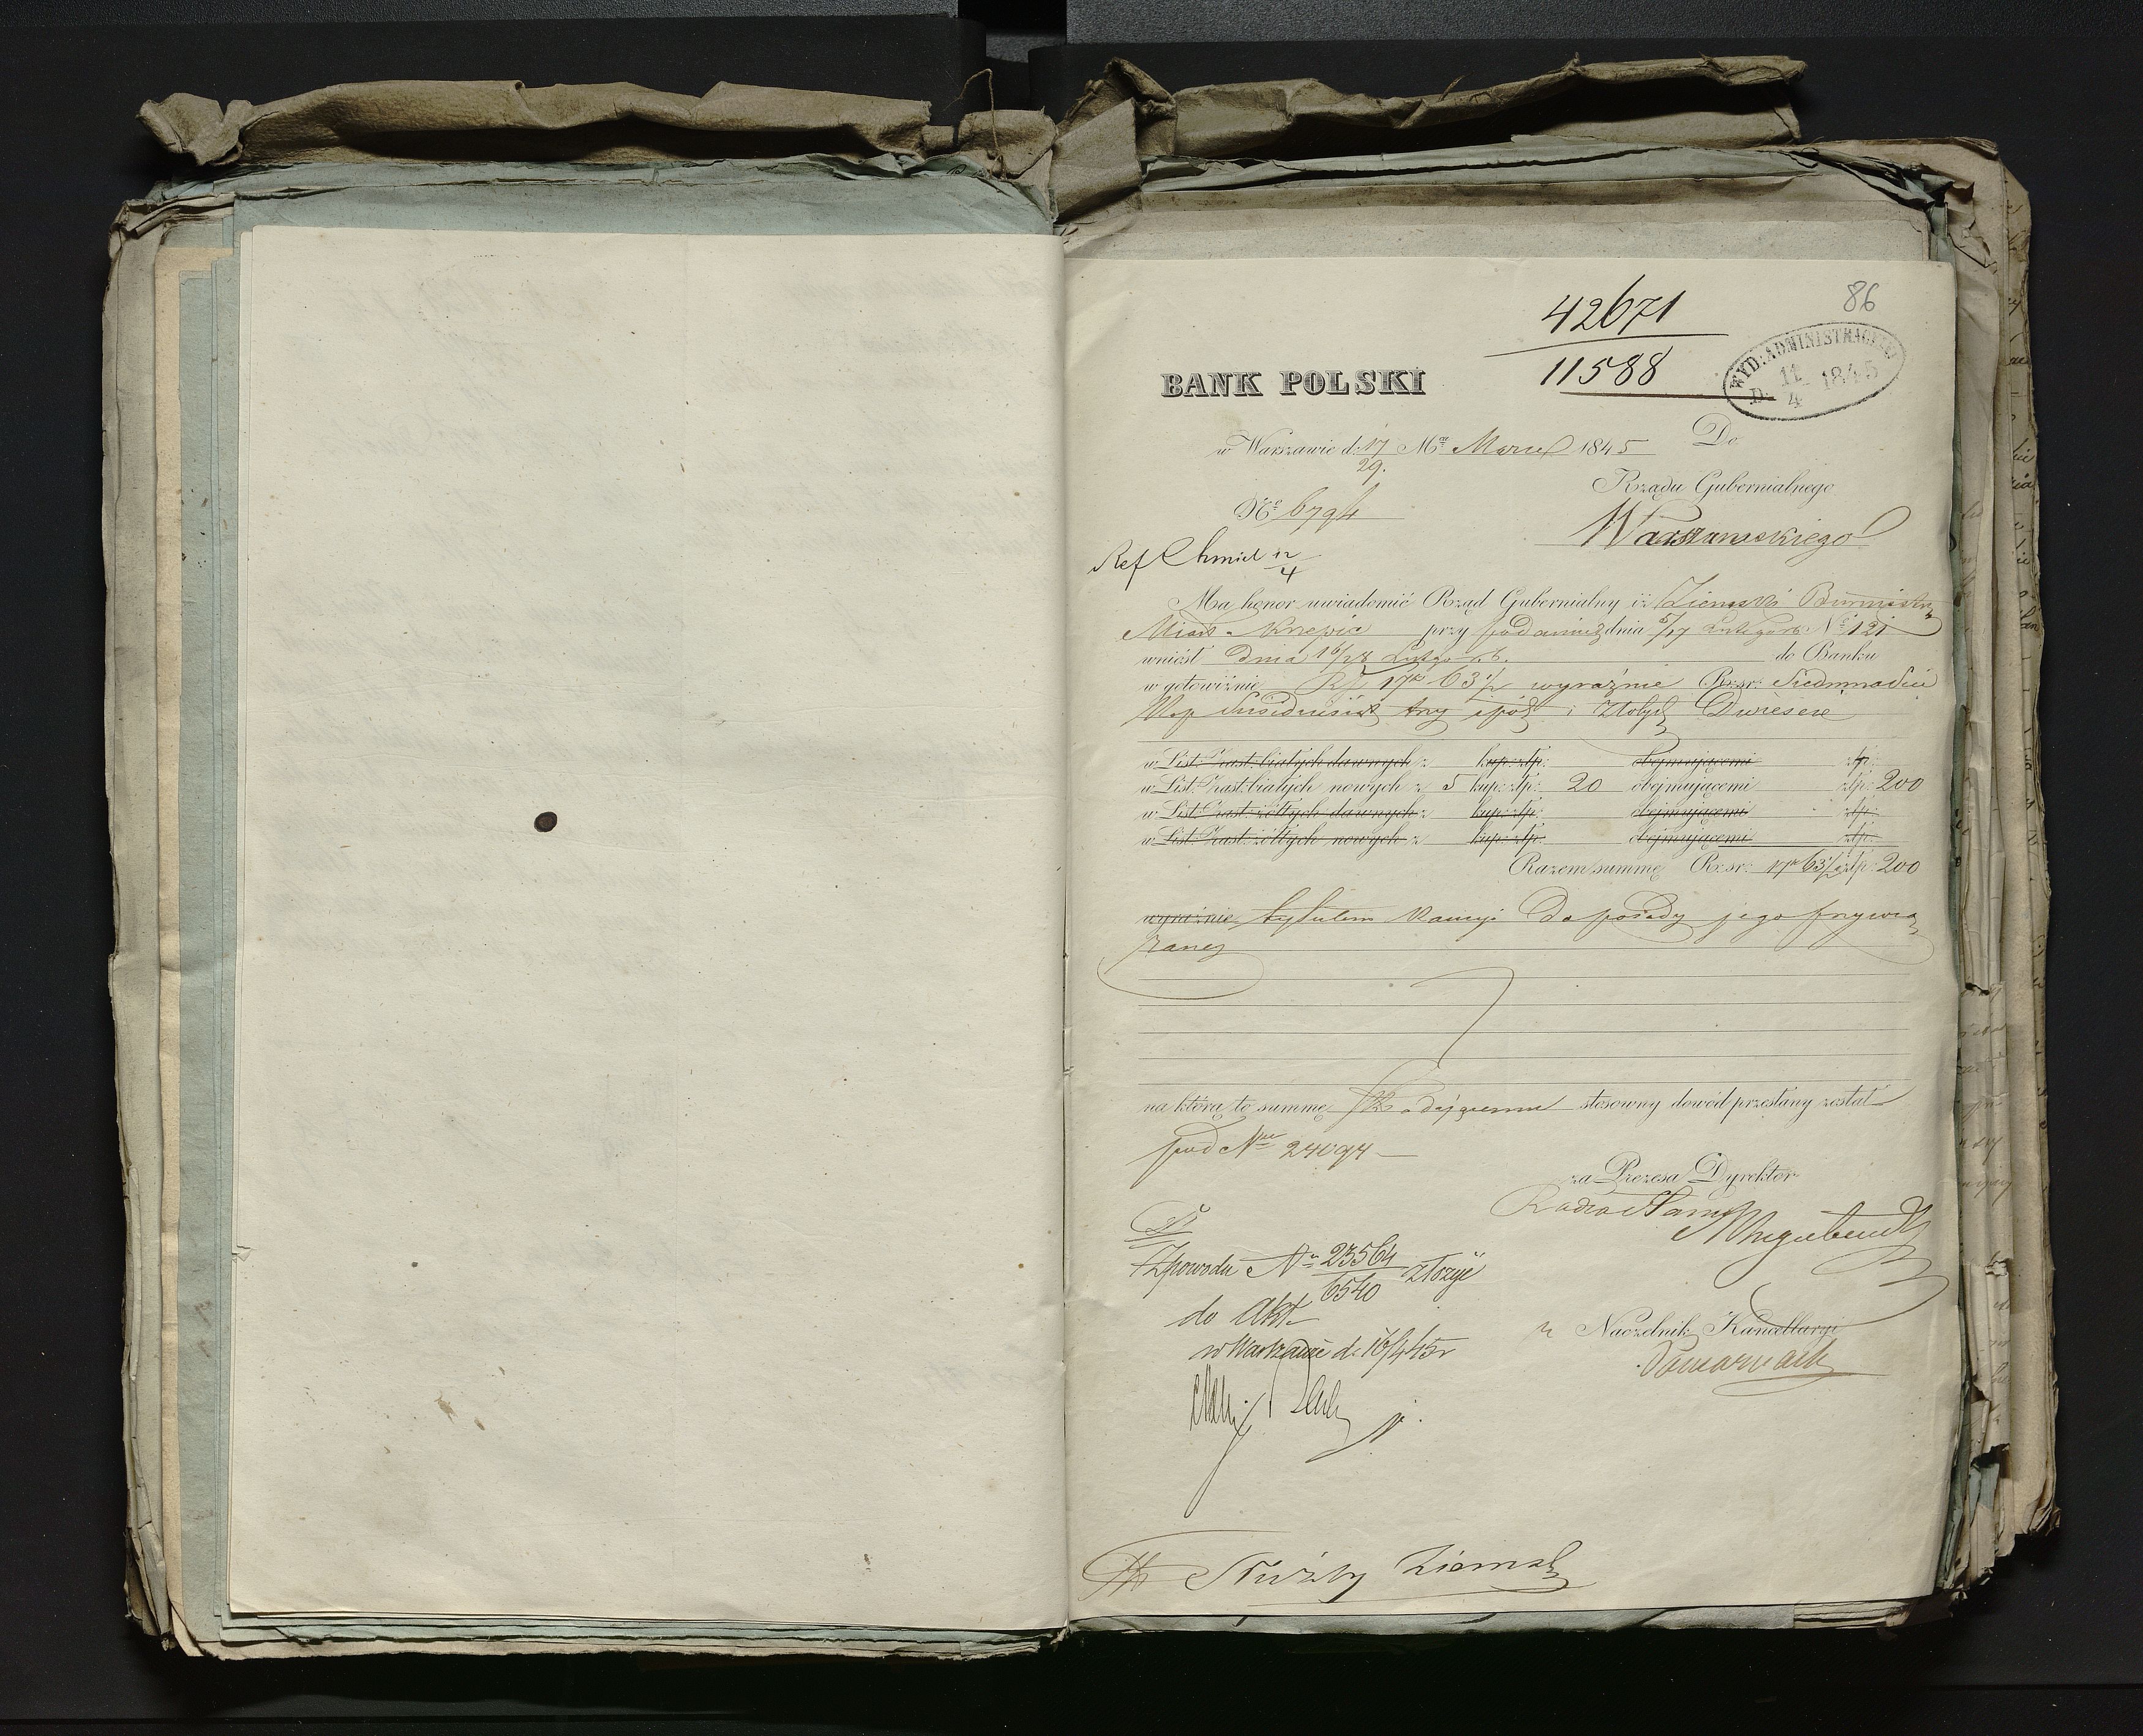 86
42671
11588
WYD: ADMINISTRACYJNY
D. 11/4 1845
BANK POLSKI
w Warszawie d: 17/29 Mca Marca 1845
Do
Rządu Gubernialnego
Warszawskiego
Nro 6794
Ref Chmiel 12/4
Ma honor uwiadomić Rząd Gubernialny iż Ziemski Burmistrz
Miasta Krzepic przy podaniu z dnia 5/17 Lutego rb. No 121
wniósł dnia 16/28 Lutego r.b. do Banku
w gotowiźnie Rs 17 k 63 1/2 wyraźnie Rs: sr: Siedmnaście
Kop sześćdziesiąt trzy i pół i Złotych Dwieście
w List: Zast: białych dawnych z kup: złp: obejmującemi złp:
w List: Zast: białych nowych z 5 kup: złp: 20 obejmującemi złp: 200
w List: Zast: żółtych dawnych z kup: złp: obejmującemi złp:
w List: Zast: żółtych nowych z kup: złp: obejmującemi złp:
Razem summę Rs: sr: 17 k 63 1/2 i złp: 200
wyraźnie tytułem kaucyi do posady jego przywią
zaney
na którą to summę składającemu stosowny dowód przesłany został
pod Nrem 24094
za Prezesa Dyrektor
Radca Stanu
Z powodu No 23564/6540 złożyć
do Akt
w Warszawie d. 16/4 45 r
Naczelnik Kancellaryi
Służby Ziemski